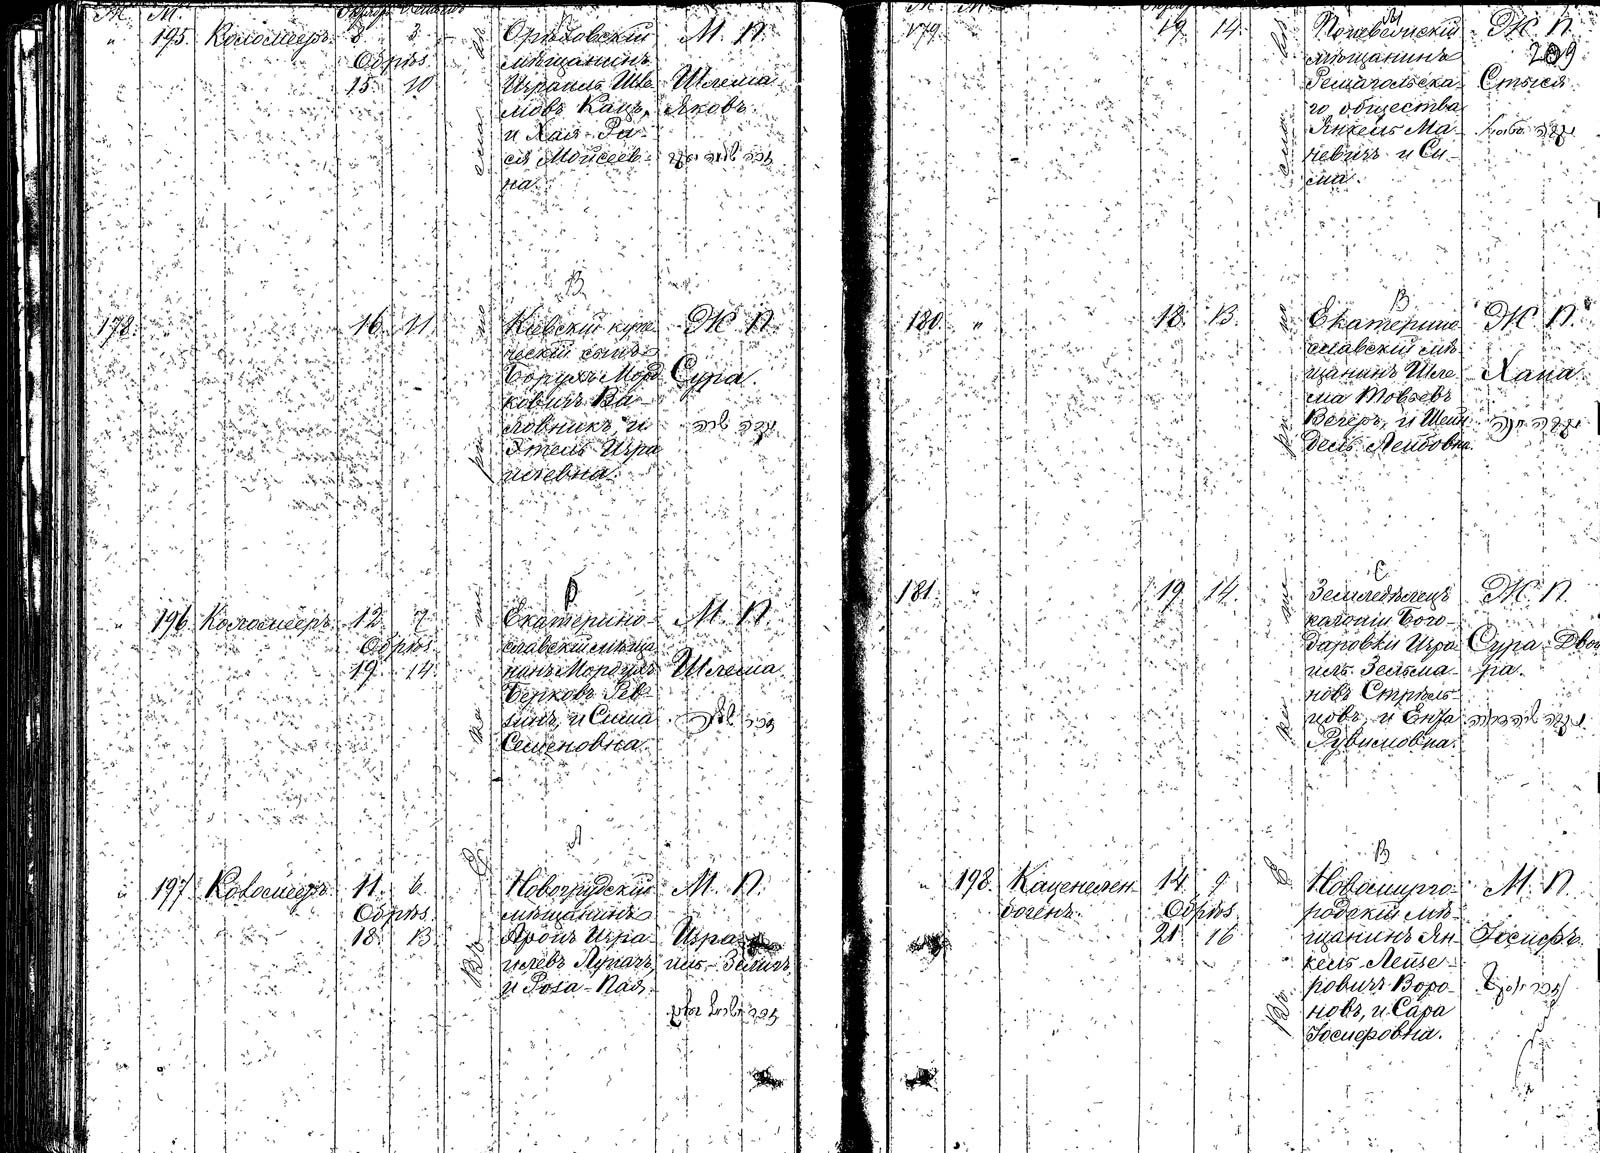 Ж. М.
195 Коломееръ 8 3
Обрѣз.
15 10
Орѣховскій
мѣщанинъ
Израиль Шле
мовъ Кацъ,
и Хая-Ра
ся Мойсеев-
на.
М. П.
Шлема
Яковъ.
178. 16. 11.
В
Кіевскій купе
ческій сынъ
Борухъ Морд
ковичъ Ва-
ловникъ, и
Этель Изра
илевна.
Ж. П.
Сура
נקבה שרה
196 Коломееръ 12 7
Обрѣз.
19. 14.
Екатерино-
славскій мѣща
нинъ Мордухъ
Берковъ Рев-
зинъ, и Сима
Семеновна.
М. П.
Шлема
זכר שלמה
197 Коломееръ 11. 6.
Обрѣз.
18. 13.
А
Новогрудскій
мѣщанинъ
Аронъ Изра-
илевъ Лупачъ,
и Роза-Пая.
М. П.
Изра-
иль-Зелигъ
זכר ישראל זעליג
179. 19 14.
мѣщанинъ
го общества
Янкель Ма-
невичъ и Си-
ма.
Ж. П.
209
Стыся
180. 18. 13.
В
Екатерино
славскій мѣ-
щанинъ Шле-
ма Товьевъ
Вегеръ, и Шейн
дель Лейбовна.
Ж. П.
Хана
181. 19. 14.
С
Земледѣлецъ
колоніи Бого-
даровки Изра
иль Зельма-
новъ Стрѣль-
цовъ, и Ента
Рувимовна.
Ж. П.
Сура-Двой
ра.
נקבה שרה דבורה
198. Каценелен-
богенъ. 14. 9
Обрѣз.
21. 16
В
Новомирго-
родскій мѣ-
щанинъ Ян-
кель Лейзе-
ровичъ Воро-
новъ, и Сара
Іосифовна.
М. П.
Іосифъ.
זכר יוסף